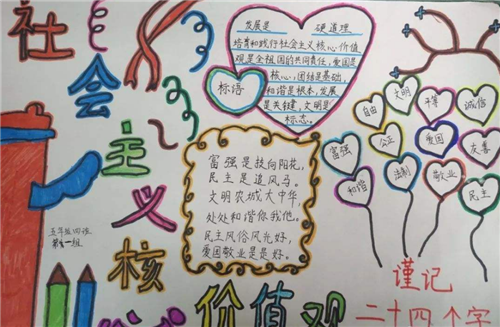 社会主义核心价值观
发展是 硬道理
培育和践行社会主义核心价值
观是全祖国的共同责任,爱国是
核心,团结是基础,
和谐是根本,发展
是关键,文明是
标志.
标语
富强是扶向阳花,
民主是追风马.
文明农城大中华,
处处和谐你我他.
民主风俗风光好,
爱国敬业是最好.
五年级四班
第一组
自由
文明
平等
诚信
富强
公正
爱国
友善
和谐
法制
敬业
民主
谨记
二十四个字